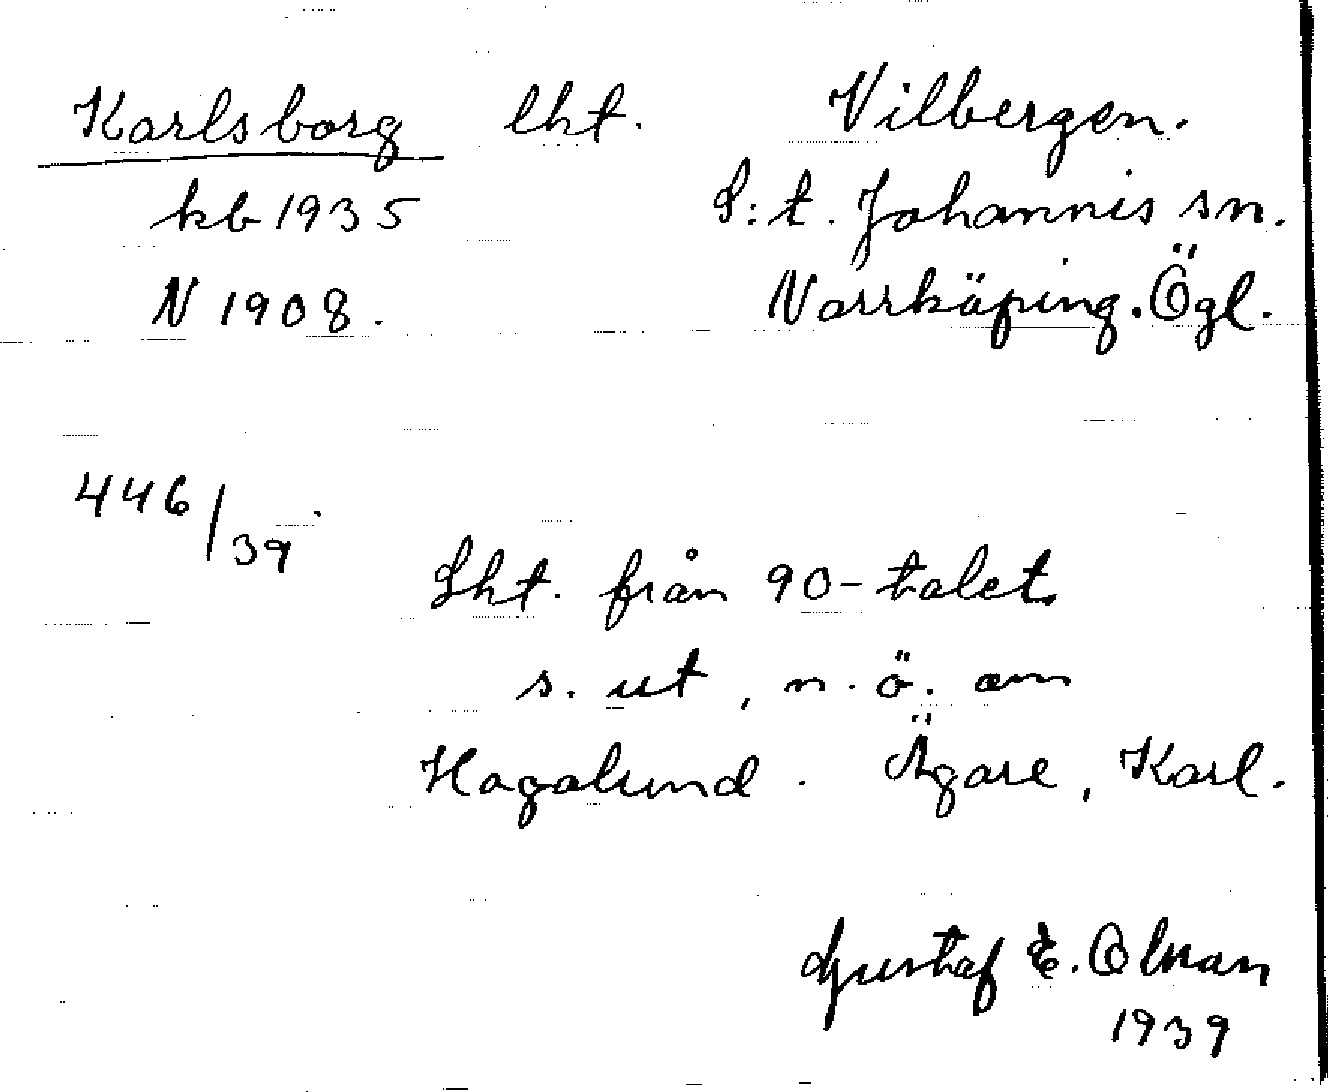 Karlsborg lht. Vilbergen.
kb 1935 S:t. Johannis sn.
N 1908. Norrköping. Ögl.
446/39
Lht. från 90-talet.
s. ut, n. ö. om
Hagalund. Ägare, Karl.
Gustaf E. Olman
1939